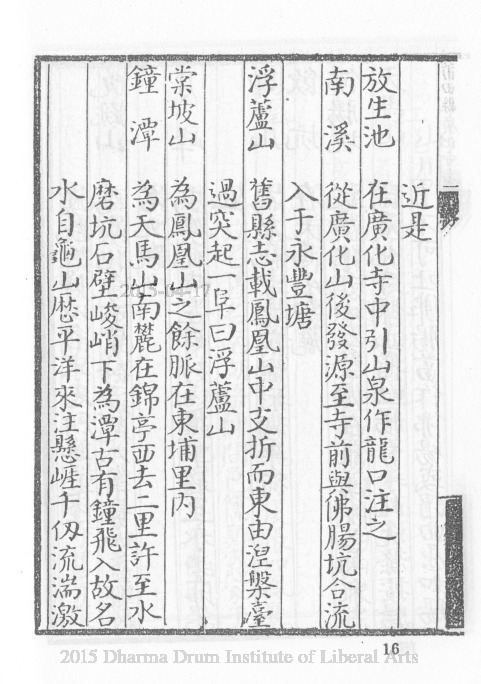 近是
放生池　在廣化寺中引山泉作龍口注之
南溪　從廣化山後發源至寺前與佛腸坑合流
入于永豐塘
浮蘆山　舊縣志載鳳凰山中支折而東由涅槃臺
過突起一阜曰浮蘆山
棠坡山　為鳳凰山之餘脈在東埔里內
鐘潭　為天馬山南麓在錦亭西去二里許至水
磨坑石壁峻峭下為潭古有鐘飛入故名
水自龜山歷平洋來注懸崖千仭流湍激
2015-04-17
16
2015 Dharma Drum Institute of Liberal Arts